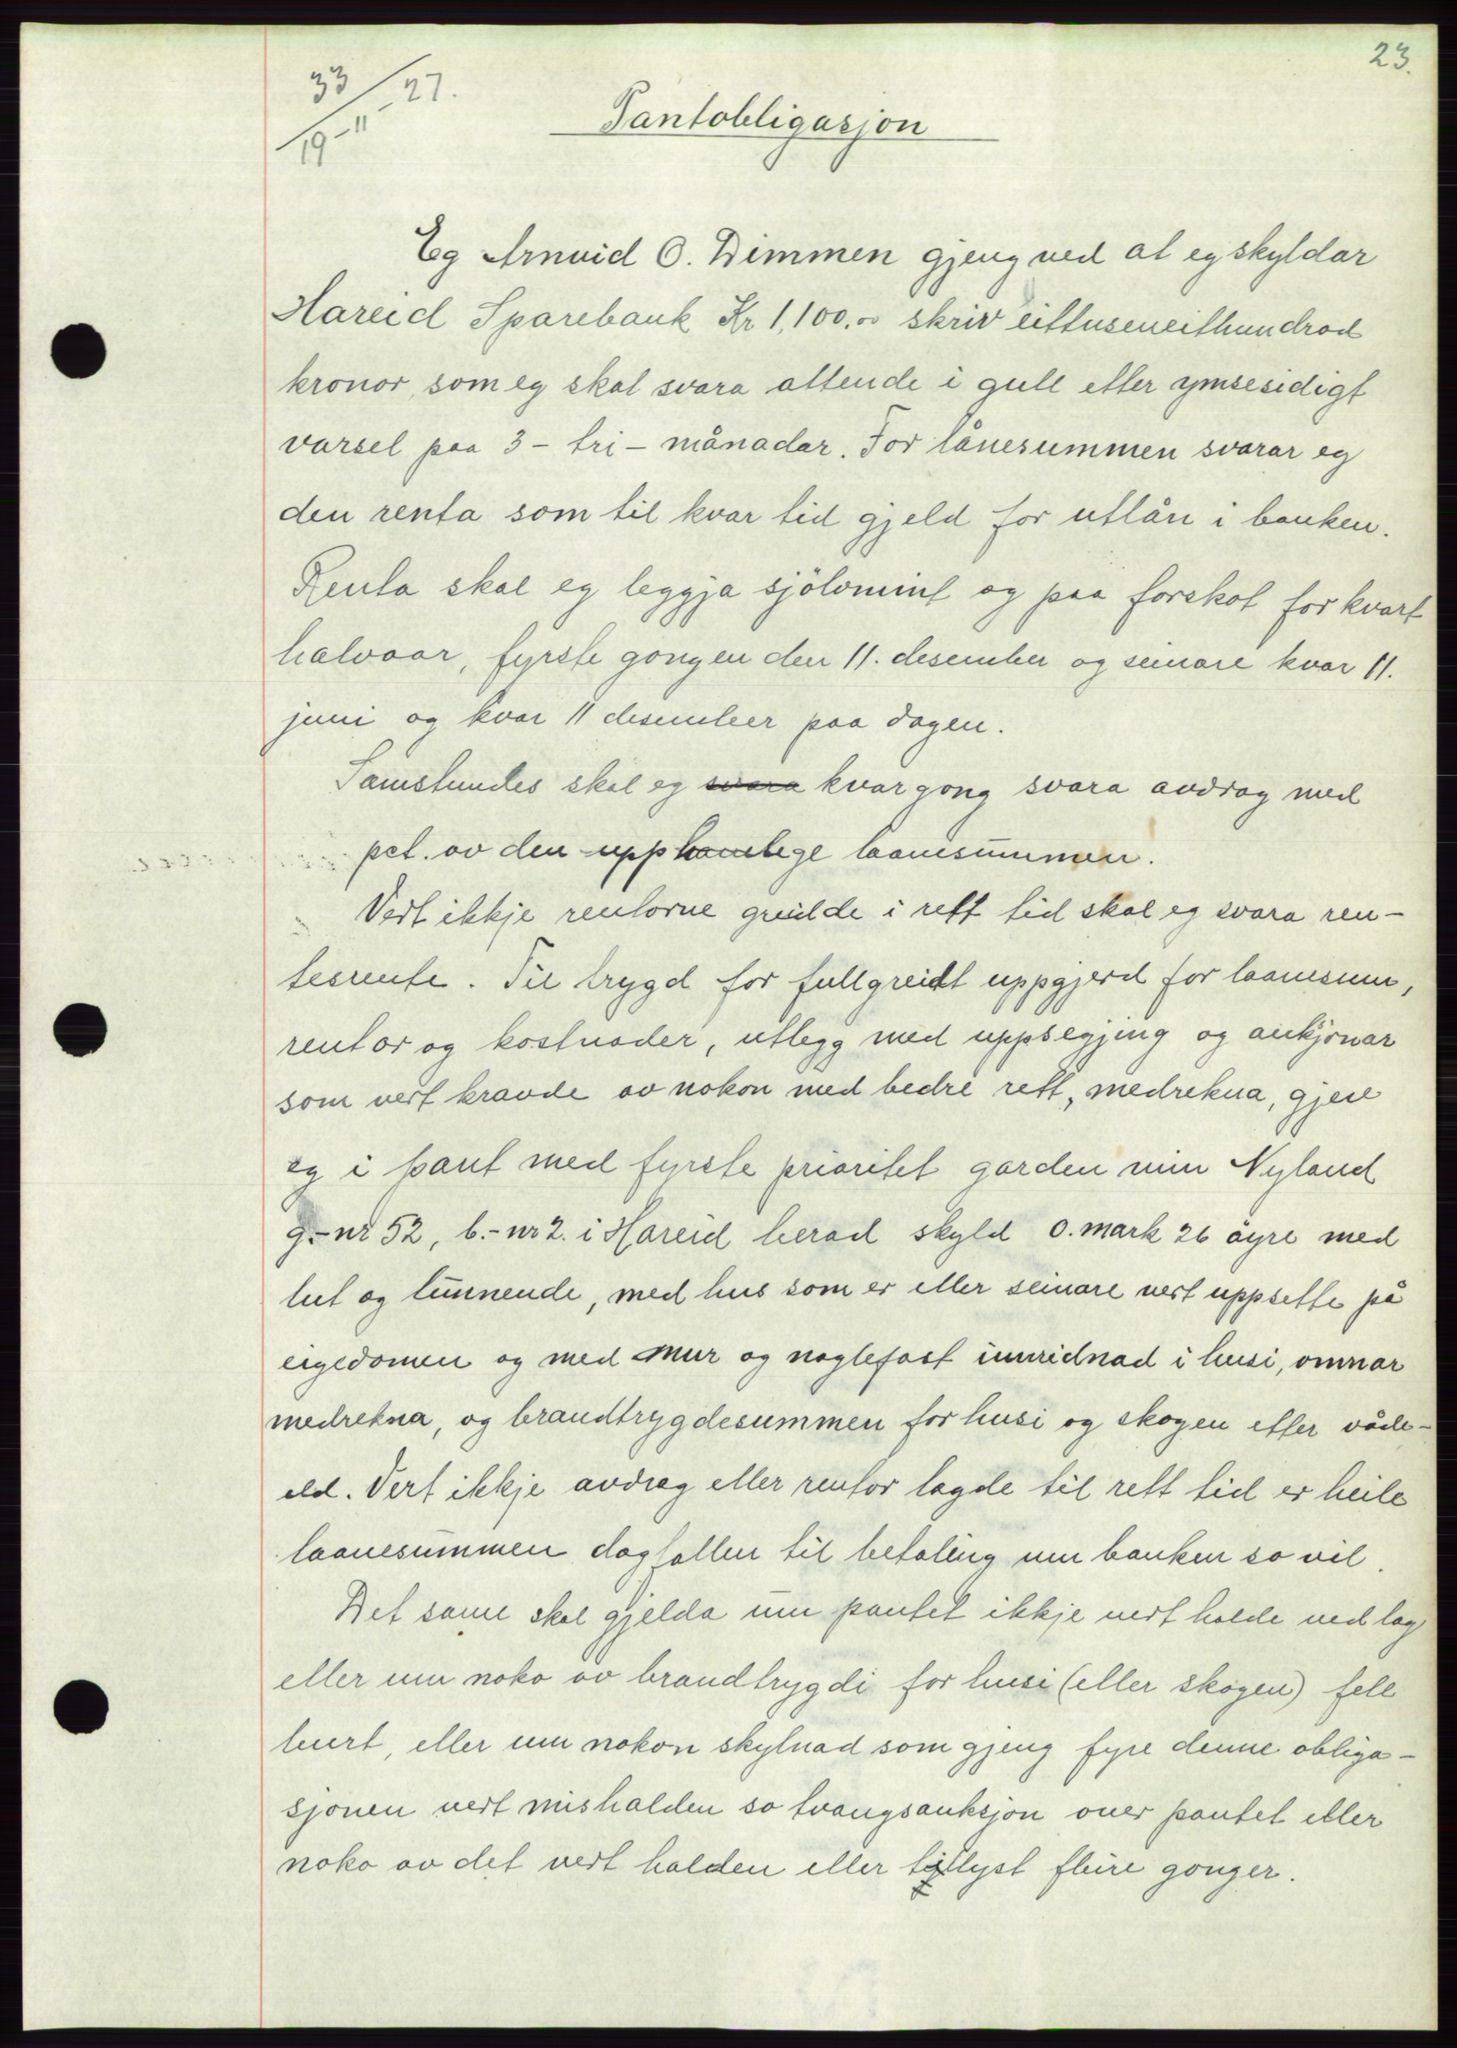 23.
33/19-11-27.
Pantobligasjon
Eg Arnvid O. Dimmen gjeng ved at eg skyldar
Hareid Sparebank Kr 1,100.00 skriv eittuseneithundrad
kronor, som eg skal svara attende i gull etter ymsesidigt
varsel paa 3 - tri - månadar. For lånesummen svarar eg
den renta som til kvar tid gjeld for utlån i banken.
Renta skal eg leggja sjölvmint og paa forskot for kvart
halvaar, fyrste gongen den 11. desember og seinare kvar 11.
juni og kvar 11 desember paa dagen.
Samstundes skal eg svara kvar gong svara avdrag med
pct. av den upphavlege laanesummen.
Vert ikkje rentorne greidde i rett tid skal eg svara ren-
tesrente. Til trygd for fullgreidt uppgjerd for laanesum,
rentor og kostnader, utlegg med uppsegjing og
som vert kravde av nokon med bedre rett, medrekna, gjev
eg i pant med fyrste prioritet garden min Nyland
g.-nr 52, b.-nr 2. i Hareid herad skyld 0. mark 26 öyre med
lut og lunnende, med hus som er eller seinare vert uppsette på
eigedomen og med mur og naglefast innreidnad i husi, omnar
medrekna, og brandtrygdesummen for husi og skogen etter våde-
eld. Vert ikkje avdrag eller rentor lagde til rett tid er heile
laanesummen dagfallen til betaling um banken so vil.
Det same skal gjelda um pantet ikkje vert halde ved lag
eller um noko av brandtrygdi for husi (eller skogen) fell
burt, eller um nokon skylnad som gjeng fyre denne obliga-
sjonen vert mishalden so tvangsauksjon over pantet eller
noko av det vert halden eller tillyst fleire gonger.